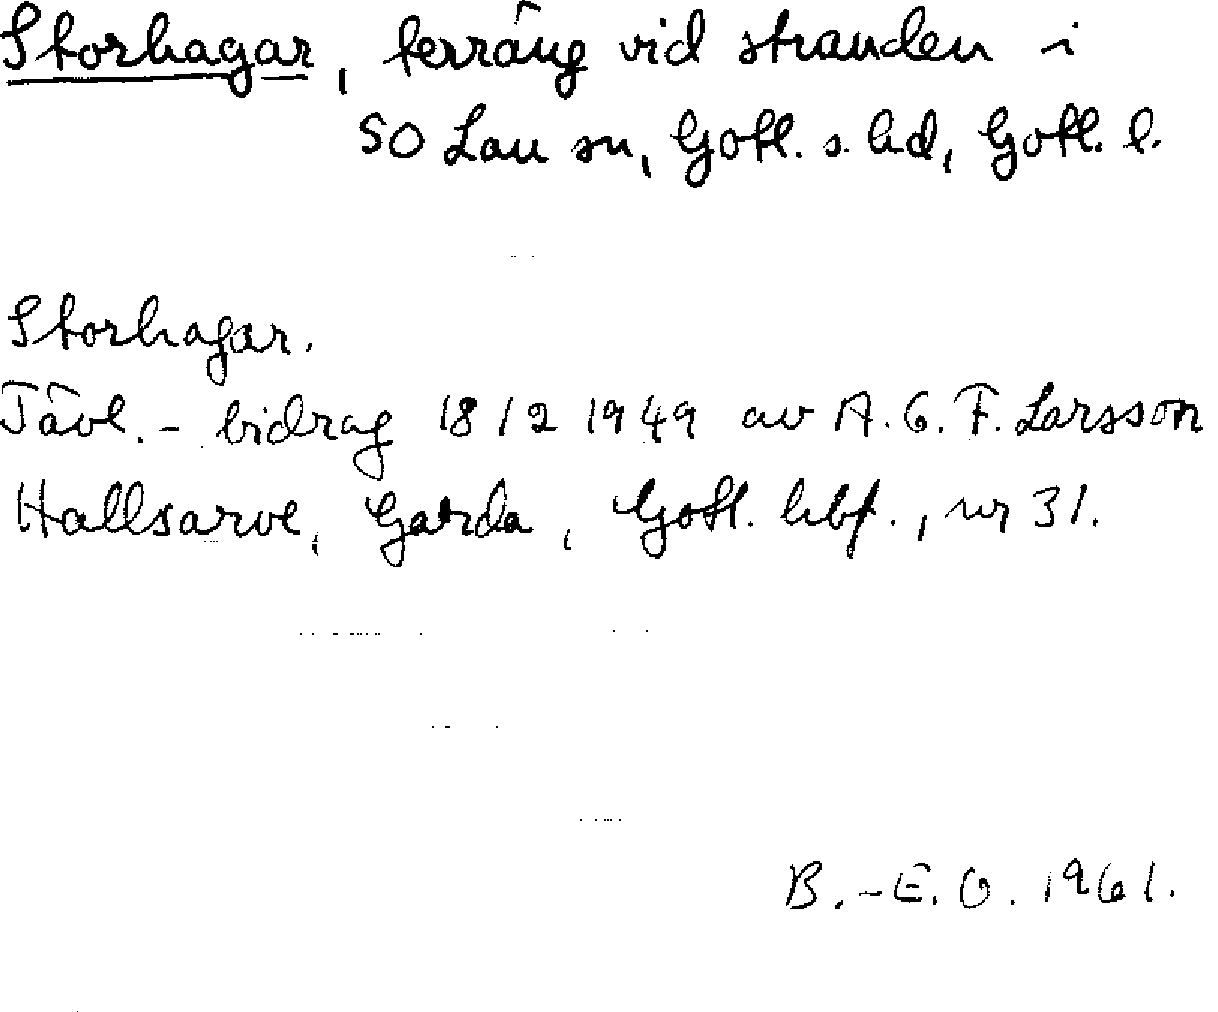 Storhagar, terräng vid stranden i
SO Lau sn, Gotl. s. hd, Gotl. l.
Storhagar.
Tävl.-bidrag 18/2 1949 av A. G. F. Larsson
Hallsarve, Garda, Gotl. hbf., nr 31.
B.-E. O. 1961.